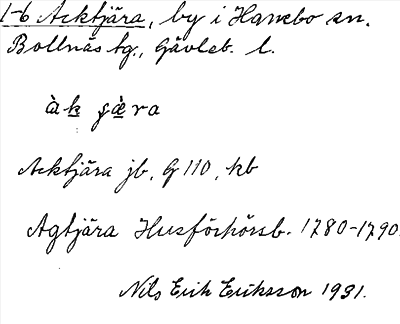 1-6 Acktjära, by i Hanebo sn.
Bollnäs tg., Gävleb. l.
Acktjära jb, G 110, kb
Agtjära Husförhörsb. 1780-1790.
Nils Erik Eriksson 1931.